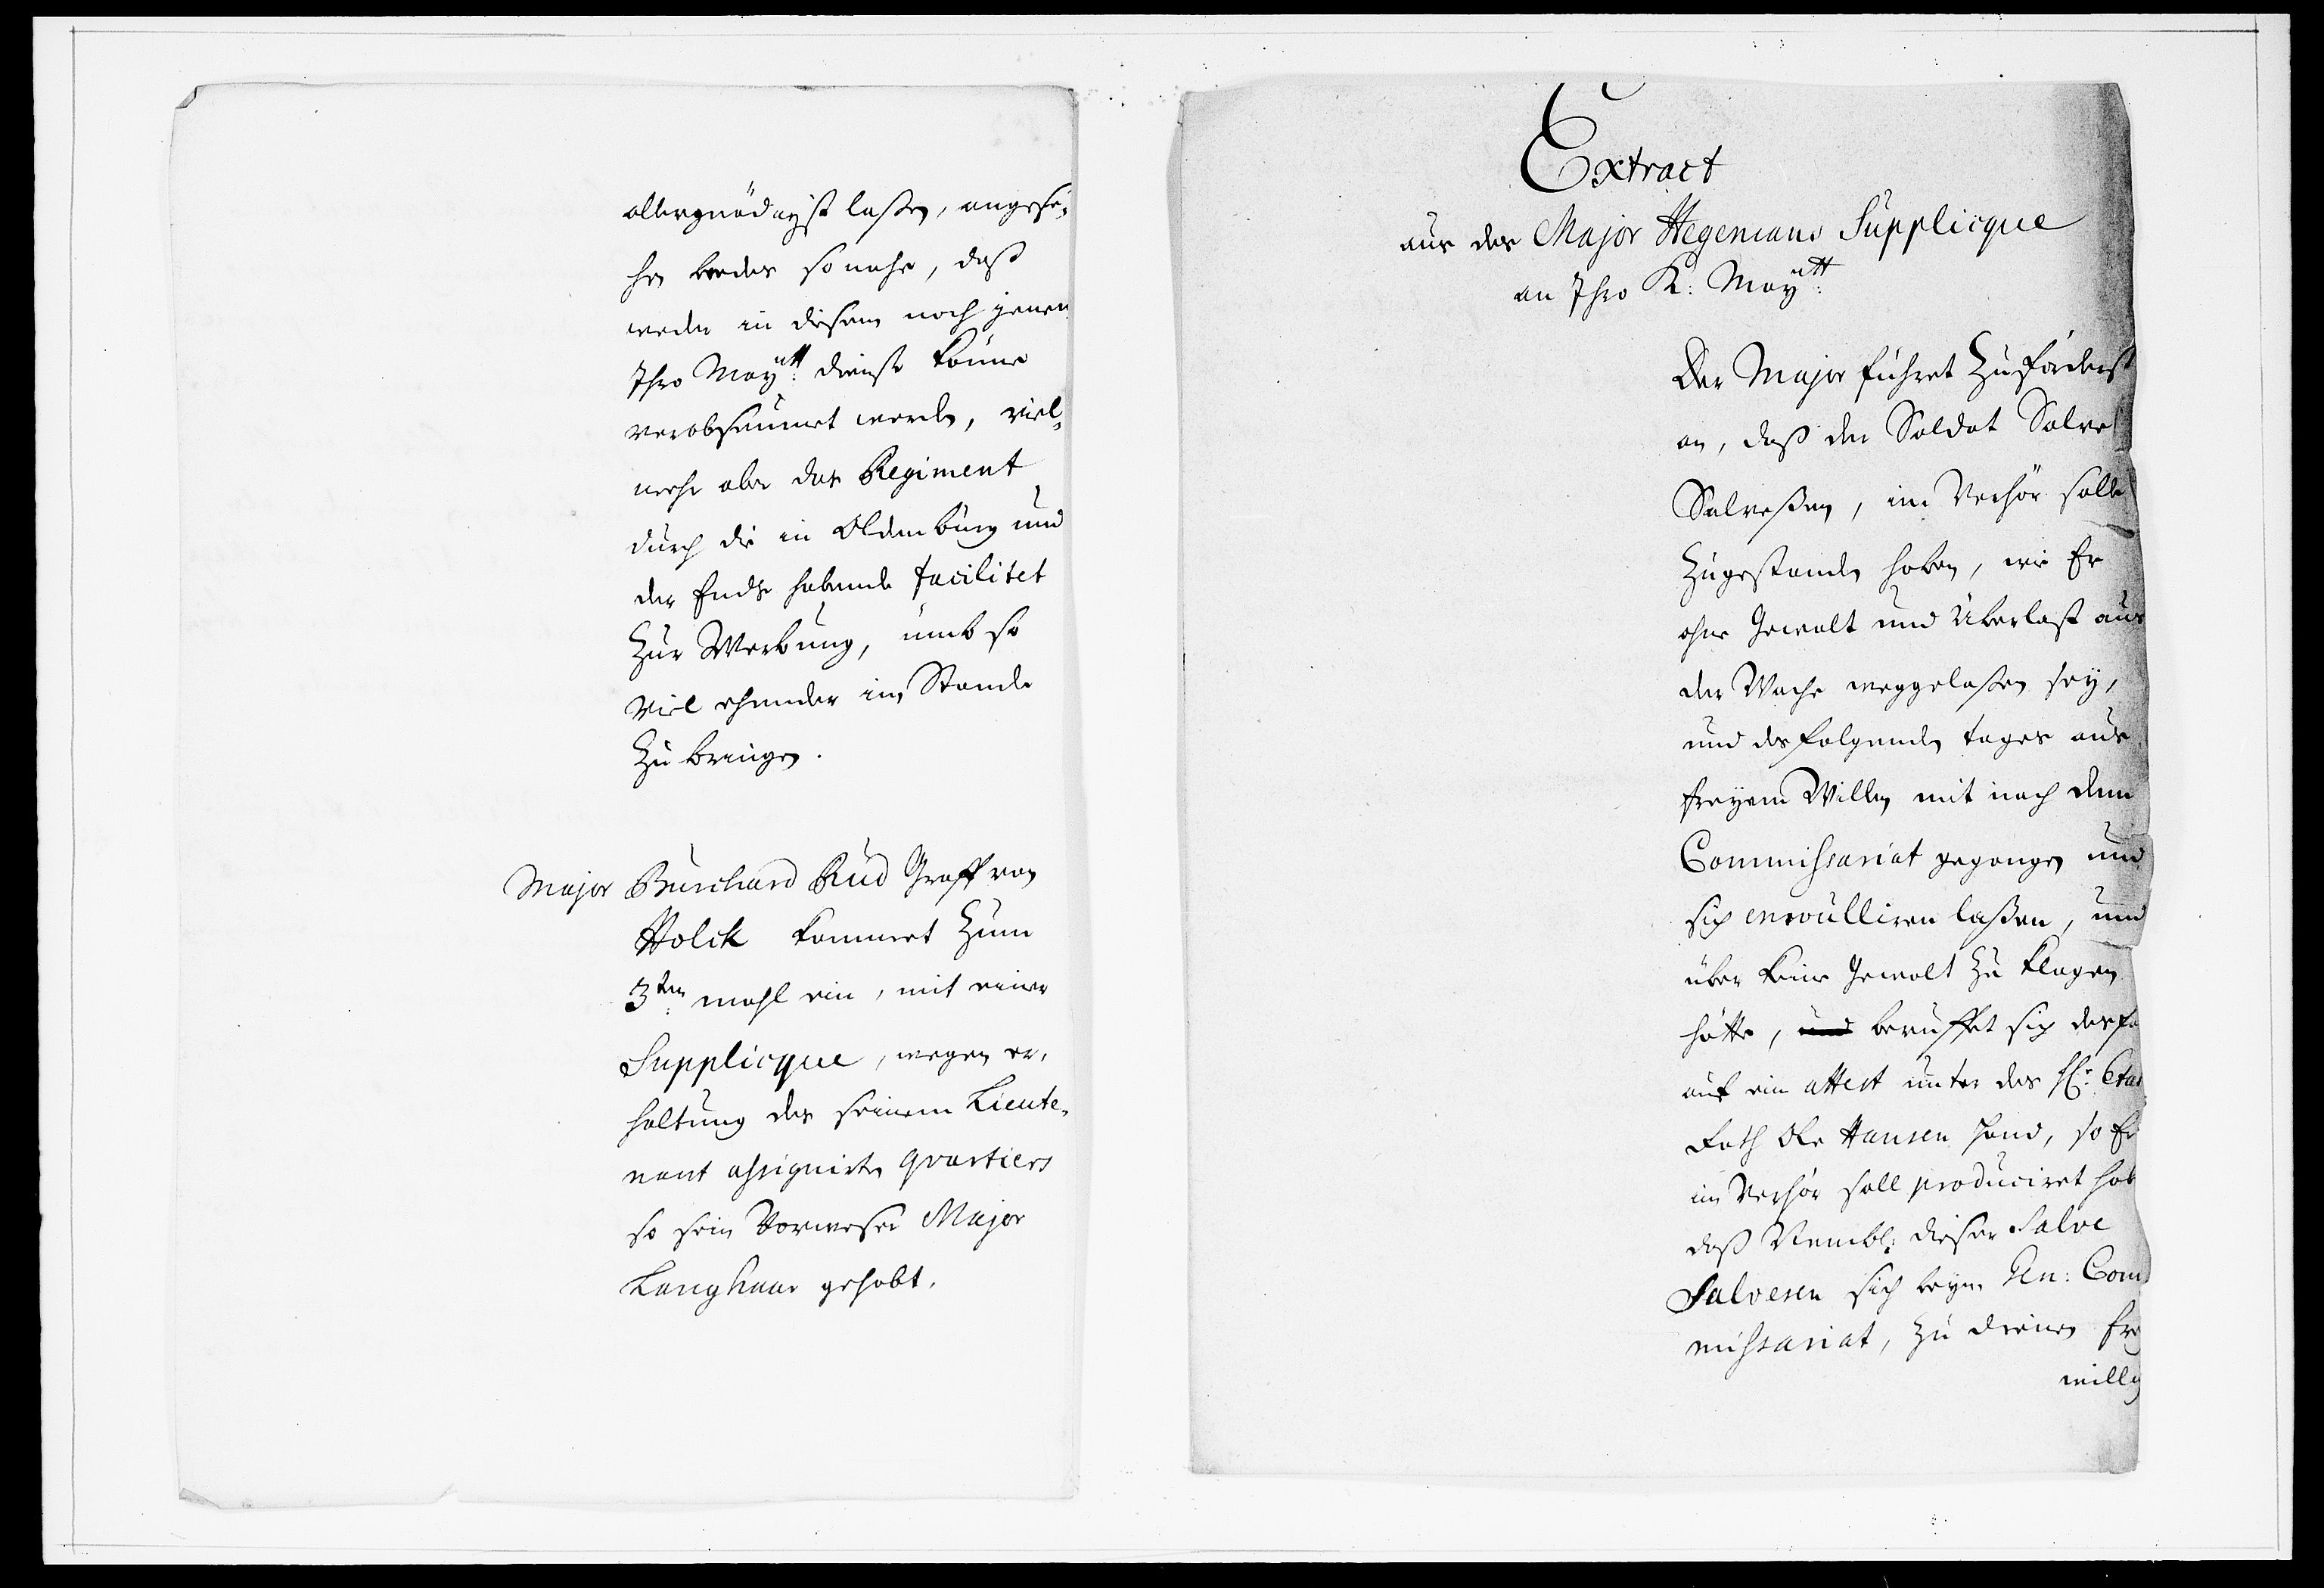 allergnädigst laßen, angese-
hen beedes so nahe, daß
weder in diesem noch jenen
Ihro Maytt: dienst könne
verabsäumet werden, viel-
mehr aber das Regiment
durch die in Oldenburg und
der Ends habende facilitet
Zur Werbung, umb so
viel ehender im Stande
Zu bringen.
Major Burchard Rud Graff von
Holck kommet Zum
3ten: mahl ein, mit einer
Supplicque, wegen er-
haltung des seinem Lieute-
nant assignirten quartiers
so sein Vorweser Major
Langhaar gehabt.
Extract
aus des Major Hegemans Supplicque
an Ihro K: Maytt:
Der Major führet Zuförderst
an, daß der Soldat Salve
Salveßen, im Verhör solle
Zugestanden haben, wie Er
ohne Gewalt und Überlast aus
der Wache weggelaßen sey,
und des folgenden tages aus
freyem Willen mit nach dem
Commissariat gegangen und
sich enroulliren laßen, und
über keine Gewalt Zu klagen
hätte, und beruffet sich desfa
auf ein attest unter des Hr: Etat
Rath Ole Hansen Hand, so Er
im Verhör soll produciret hab
daß Nembl: dieser Salve
Salvesen sich beym Gen: Com
missariat, Zu dienen frey
willig